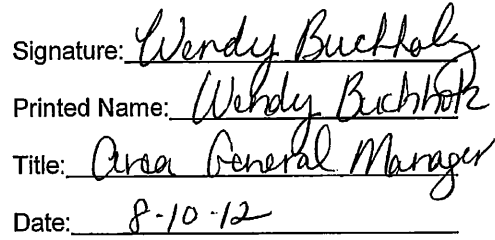 Signature: Wendy Buchholz
Printed Name: Wendy Buchholz
Title: Area General Manager
Date: 8-10-12